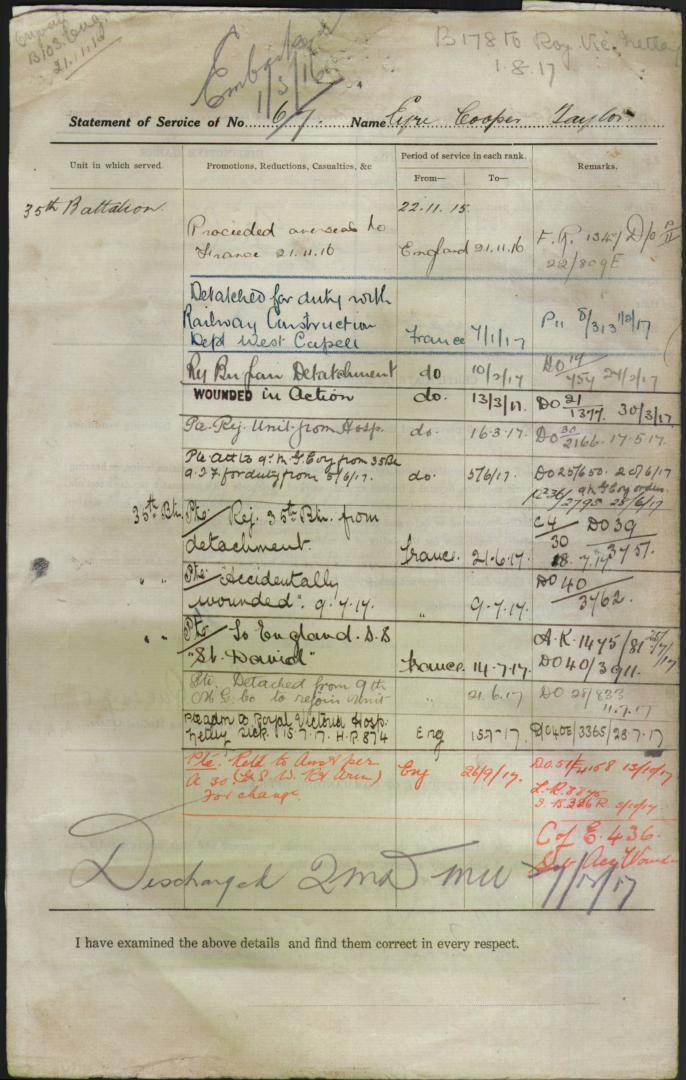 B103. Eng.
21.11.16
Embarked
1/5/16
B178 to Roy. Vic. Netley
1.8.17
Statement of Service of No. 67. Name Eyre Cooper Taylor
Unit in which served. Promotions, Reductions, Casualties, &c Period of service in each rank. Remarks.
From— To—
35th Battalion. 22.11.15
Proceeded overseas to
France 21.11.16 England 21.11.16
22/809E
Detatched for duty with
Railway Construction
Dept West Capell France 7/1/17 P11 8/313 1/2/17
Detatchment do 10/2/17 DO 14/454 24/2/17
WOUNDED in Action do. 13/3/17. DO 21/1377 30/3/17
Rej. Unit from Hosp. do. 16.3.17. DO 30/2166 17.5.17.
for duty from 5/6/17. do. 5/6/17. DO 25/650 20/6/17
35th Btn. Pte. Rej. 35th Btn. from
detachment. France. 21.6.17. DO 39/3757.
18.7.17
" " Pte Accidentally
wounded". 9.7.17. " 9.7.17. DO 40/3762.
" " Pte To England. S.S
"St. David" France. 14.7.17. A.K. 1475/81
DO 40/3911.
Pte. Detached from 9th
M.G. Co to rejoin unit " 21.6.17 DO 28/833
11.7.17
Pte adm to Royal Victoria Hosp.
Netley sick. 15.7.17. H.P. 874 Eng 15.7.17 DO40E/3365/28.7.17
Pte. Retd to Aust per
A 30 (G.S.W. Rt Arm) Eng 26/9/17. 13/10/17
For change
C of E. 436.
Discharged 2 MD MU
I have examined the above details and find them correct in every respect.